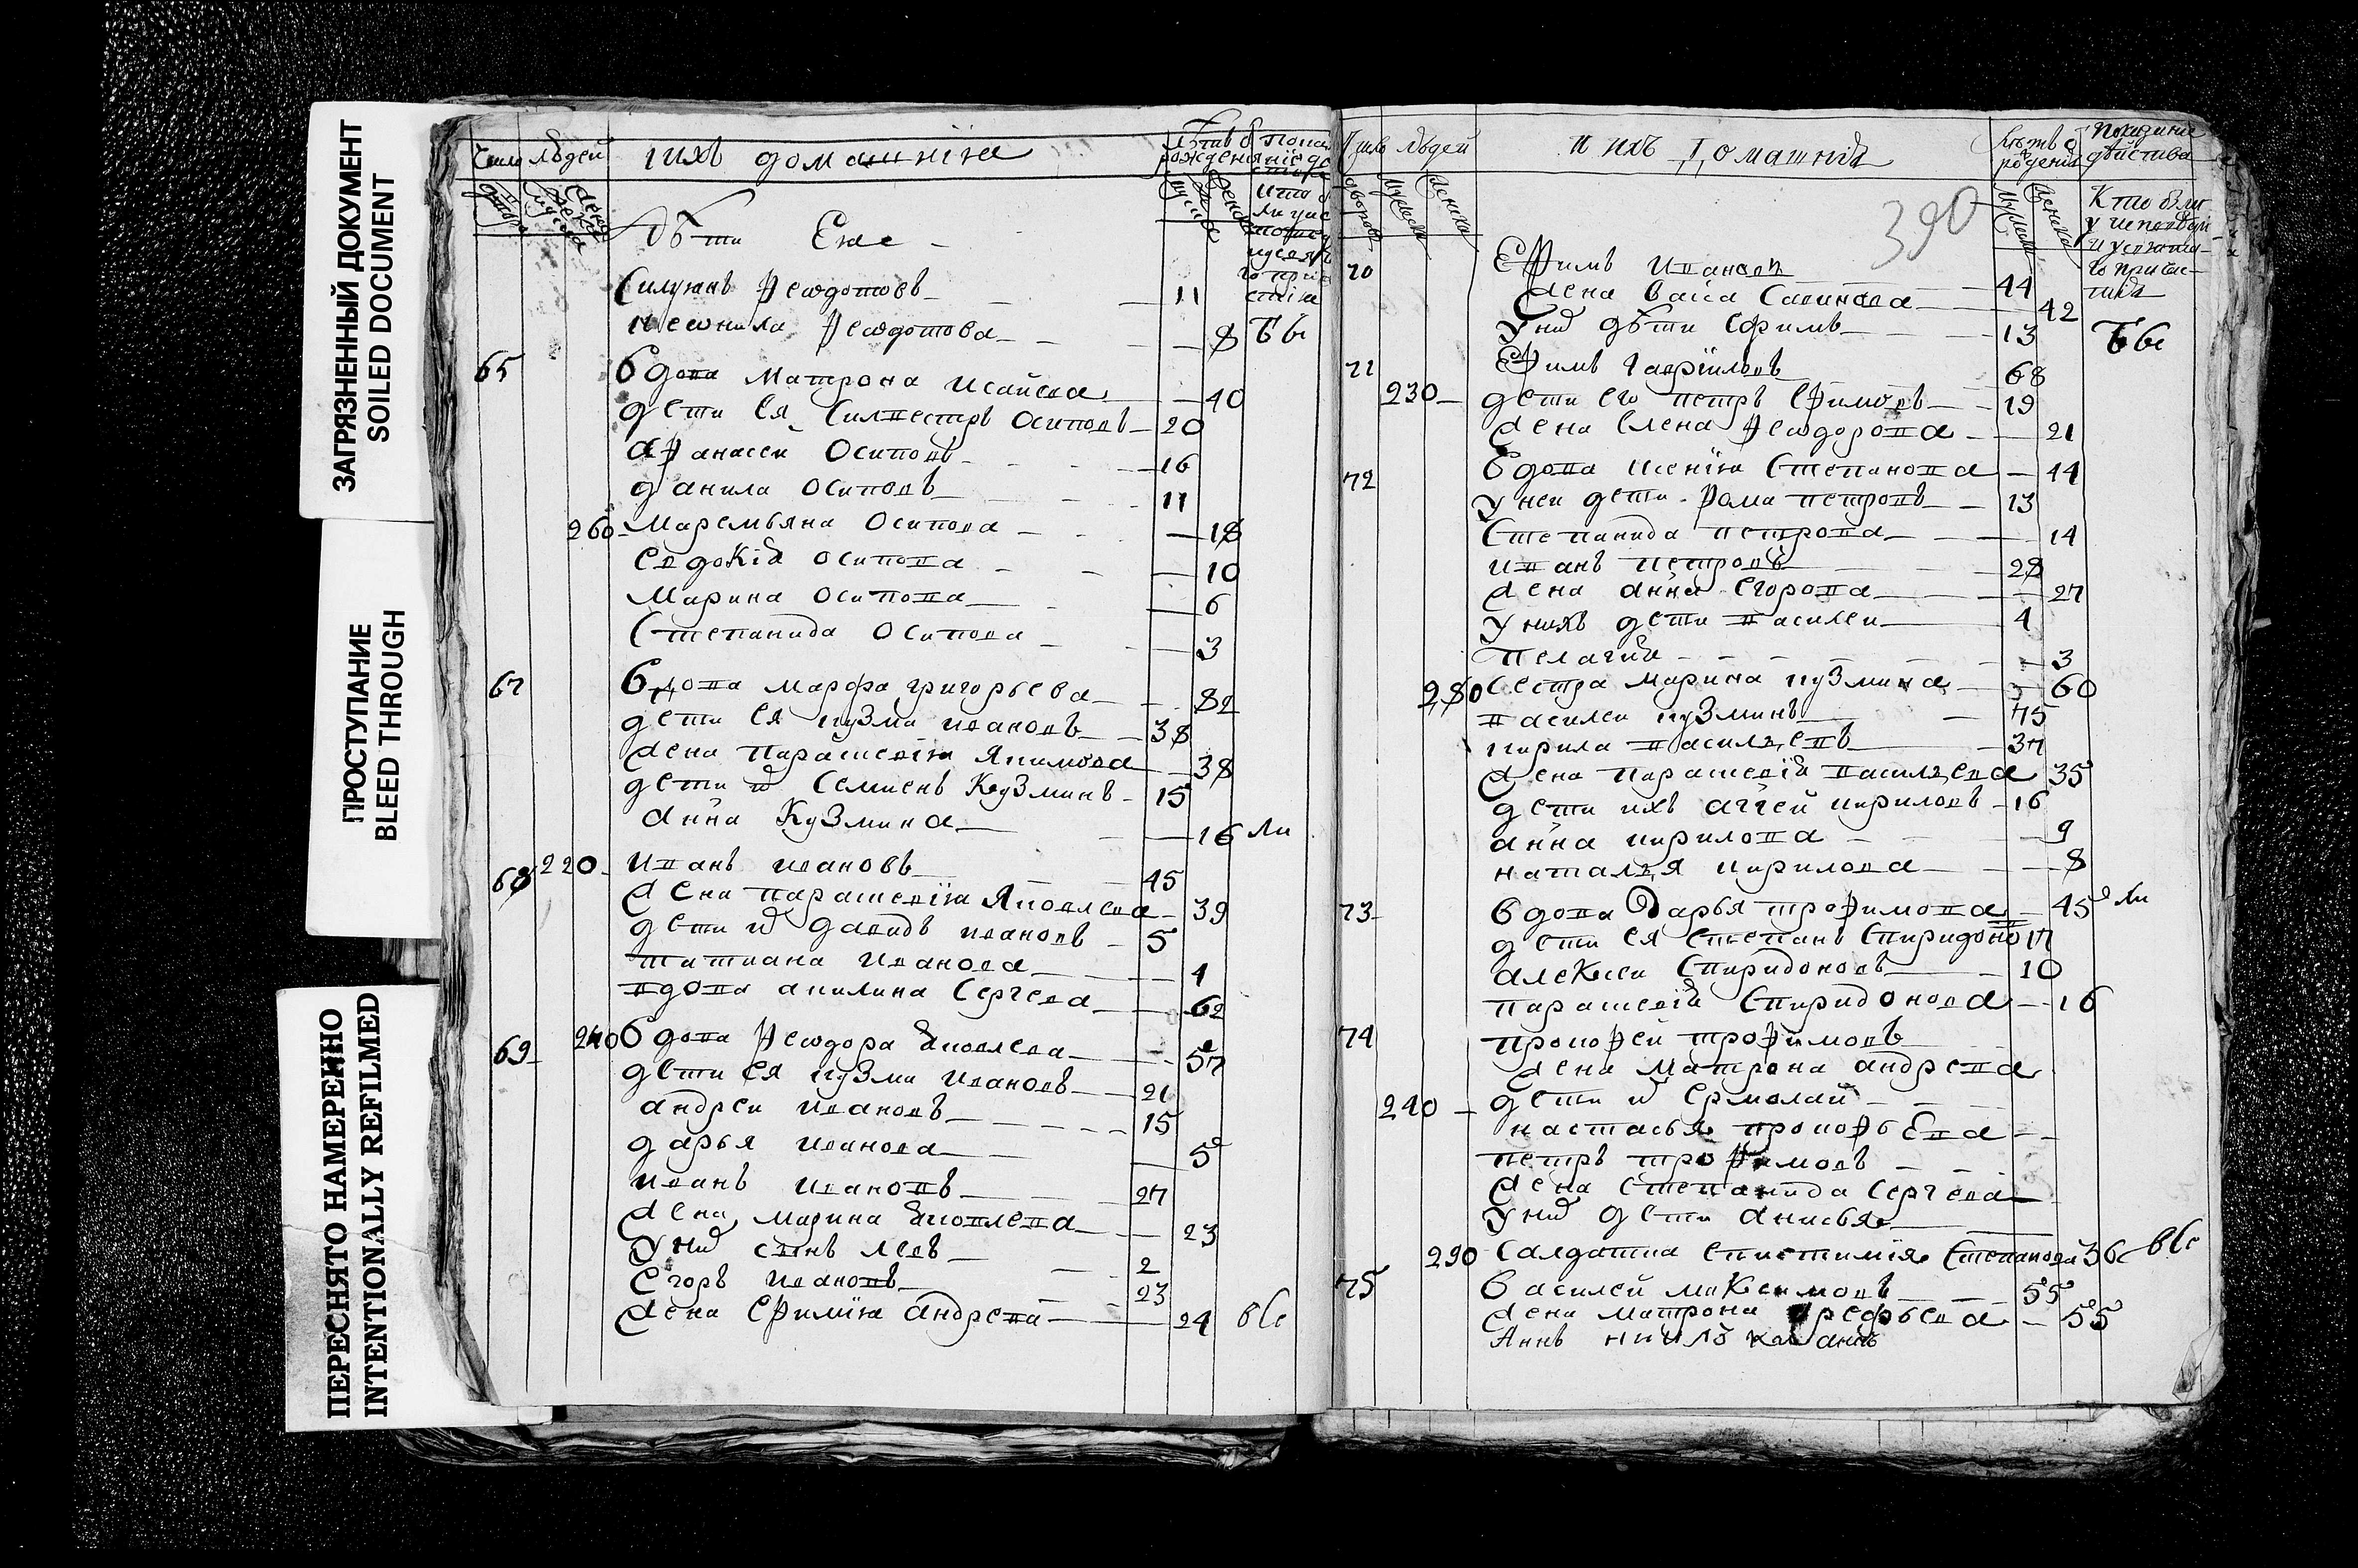 ЗАГРЯЗНЕННЫЙ ДОКУМЕНТ
SOILED DOCUMENT
ПРОСТУПАНИЕ
BLEED THROUGH
ПЕРЕСНЯТО НАМЕРЕННО
INTENTIONALLY REFILMED
Число людей ихъ домашнїя
Дѣти Еже
Силуянъ Ѳеѡдотовъ 11
Неѡнила Ѳеѡдотова 8
65 Вдова Матрона Исаїева 40
дети ея Силвестръ Осиповъ 20
Афанасеи Осиповъ 16
данила Осиповъ 11
260 Маремьяна Осипова 18
Евдокїа Осипова 10
Марина Осипова 6
Степанида Осипова 3
67 Вдова марфа григорьева 82
дети ея кузма ивановъ 38
жена Парасковїя Якимова 38
дети ихъ Семиенъ Кузминъ 15
Анна Кузмина 16 Ли
68 220 Иванъ ивановъ 45
жена парасковїя Яковлева 39
дети их давидъ ивановъ 5
татиана иванова 4
вдова акилина Сергеева 62
69 Вдова Ѳеѡдора Яковлева 57
дети ея кузма ивановъ 21
андреи ивановъ 15
дарья иванова 5
иванъ ивановъ 27
жена марина Яковлева 23
У них сынъ левъ 2
Егоръ ивановъ 23
жена Ефимїя Андрева 24 вси
людей и ихъ домашнїя
390
Кто были
у исповеди
70 Ефимъ Ивановъ 44
жена Васса Савинова 42
У них дѣти Ефимъ 13
71 Ефимъ Гаврїиловъ 68
230 дети его петръ Ефимовъ 19
жена Елена Ѳеѡдорова 21
72 Вдова Ксенїя Степанова 44
У неи дети Фома петровъ 13
Степанида петрова 14
иванъ петровъ 28
жена Анна Егорова 27
У нихъ дети василеи 4
пелагия 3
280 Сестра марина кузмина 60
василеи кузминъ 75
кирила василъевъ 37
жена парасковїя василъева 35
дети ихъ аггей кириловъ 16
анна кирилова 9
наталъя кирилова 8
73 вдова Дарья трофимова 45 Ли
дети ея степанъ Спиридоно 17
алеѯеи Спиридоновъ 10
парасковїя Спиридонова 16
74 прокофеи трофимовъ
жена матрона андрева
240 дети их Ермолай
настасья прокофьева
петръ трофимовъ
жена степанида сергеева
У них дети Анисья
290 Салдатка Епистимїя Степанова 36 вси
75 Василей маѯимовъ 55
жена матрона Арефьева 55